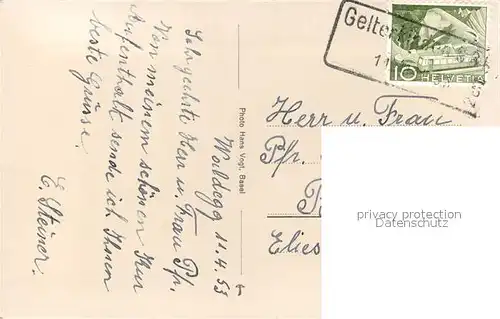 Waldegg 11.4.53
Sehrgeehrte Herr u. Frau Pfr.
Von meinem schönen Kur
Aufenthalt sende ich Ihnen
beste Grüsse.
E. Steiner.
Photo Hans Vogt, Basel
Gelterki
10
HELVETIA
Herr u. Frau
Pfr.
Elies
privacy protection
Datenschutz